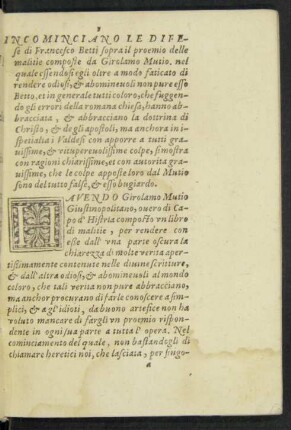 INCOMINCIANO LE DIFE-
se di Francesco Betti sopra il proemio delle
malitie composte da Girolamo Mutio. nel
quale essendosi egli oltre a modo faticato di
rendere odiosi, & abomineuoli non pure esso
Betto, et in generale tutti coloro, che fuggen-
do gli errori della romana chiesa, hanno ab-
bracciata, & abbracciano la dottrina di
Christo, & de gli apostoli, ma anchora in i-
spetialita i Valdesi con apporre a tutti gra-
uissime, & vituperuolissime colpe, si mostra
con ragioni chiarissime, et con autorita gra-
uissime, che le colpe apposte loro dal Mutio
sono del tutto false, & esso bugiardo.
HAVENDO Girolamo Mutio
Giustinopolitano, ouero di Ca-
po d'Histria composto vn libro
di malitie, per rendere con
esse dall'vna parte oscura la
chiarezza di molte verita aper-
tissimamente contenute nelle diuine scritture,
& dall'altra odiosi, & abomineuoli al mondo
coloro, che tali verita non pure abbracciano,
ma anchor procurano di farle conoscere a sim-
plici, & a gl'idioti, da buono artefice non ha
voluto mancare di fargli vn proemio rispon-
dente in ogni sua parte a tutta l'opera. Nel
cominciamento del quale, non bastandogli di
chiamare heretici noi, che lasciata, per fuggo-
a